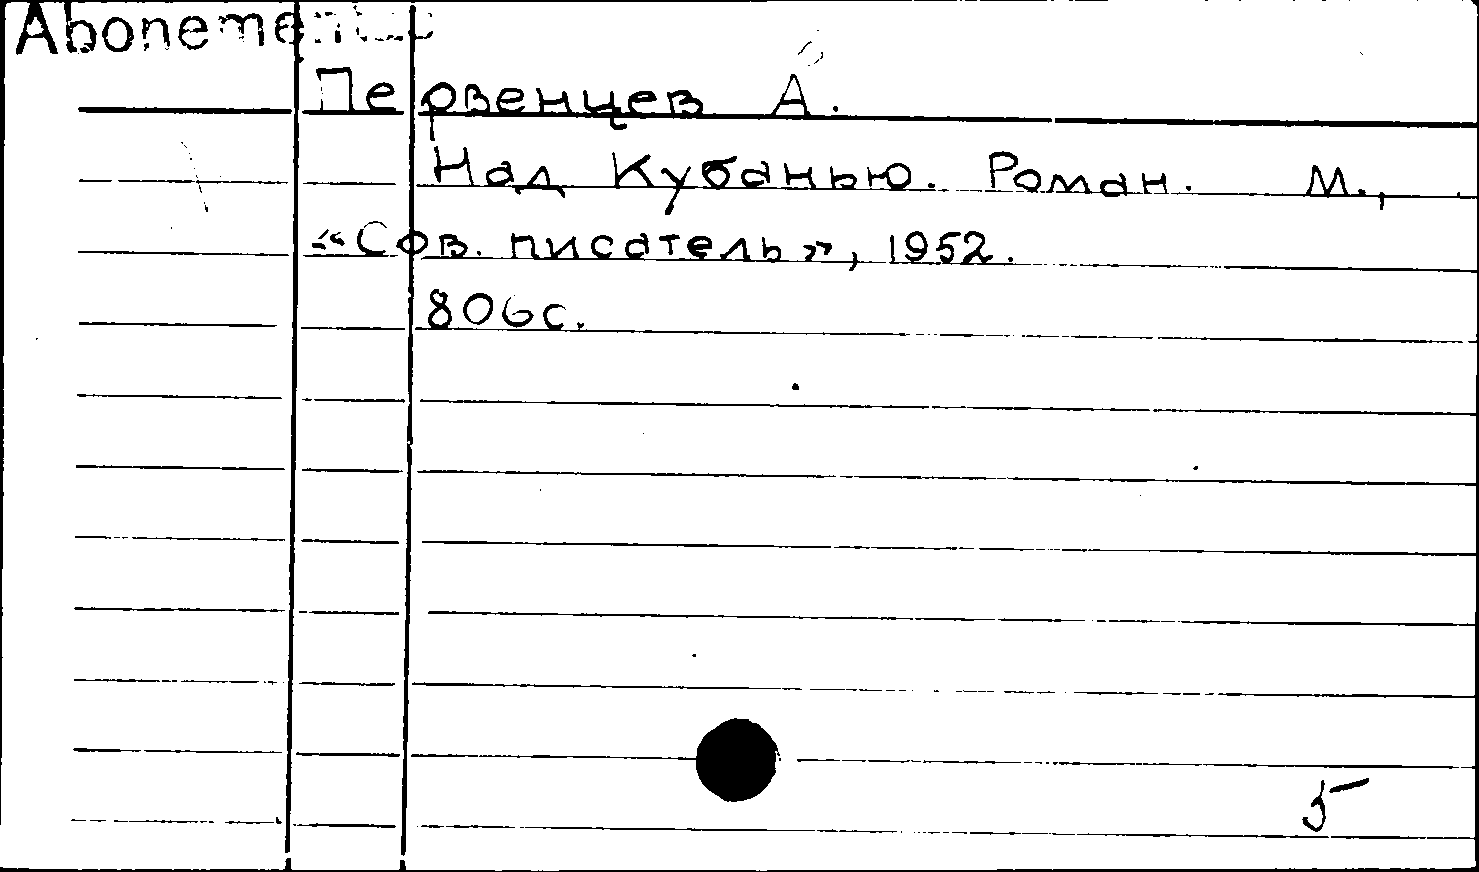 Abonementas
Первенцев А.
Над Кубанью. Роман. М.,
«Сов. писатель», 1952.
806с.
5